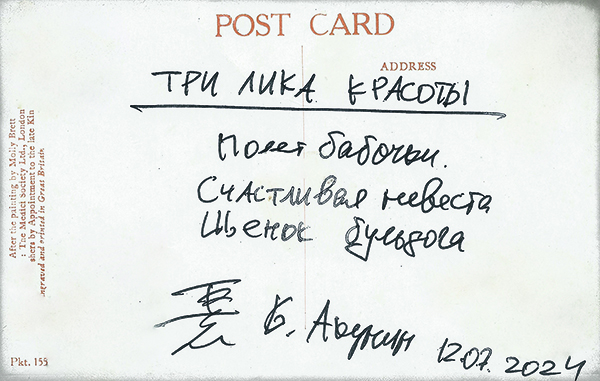 POST CARD
ADDRESS
ТРИ ЛИКА КРАСОТЫ
Полет бабочки.
Счастливая невеста
Щенок бульдога
Б. Акунин
12.07.2024
After the painting by Molly Brett
: The Medici Society Ltd., London
shers by Appointment to the late Kin
ngraved and printed in Great Britain
Pkt. 155